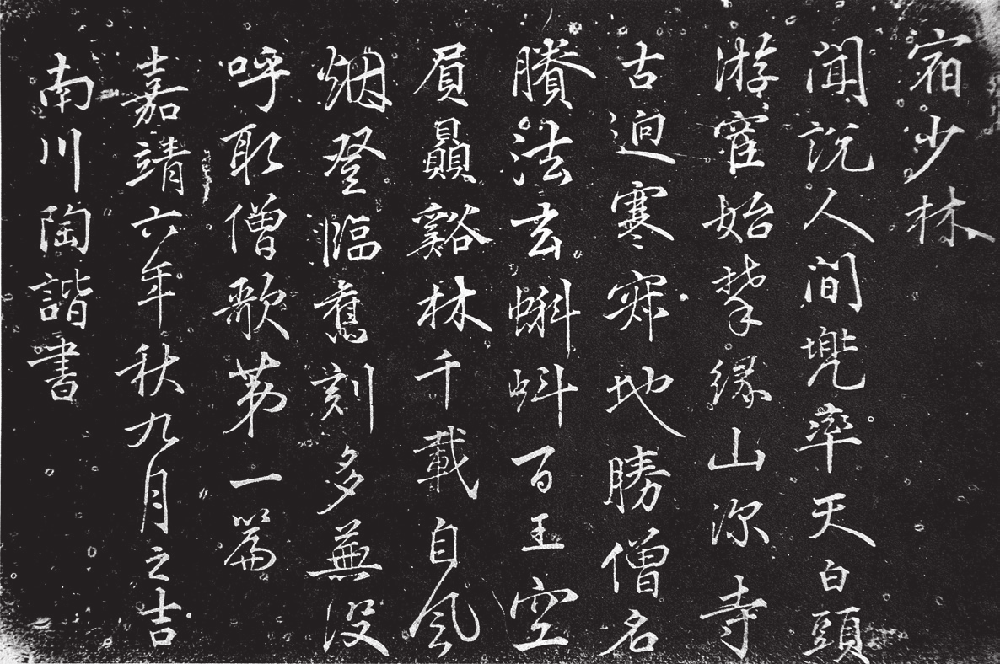 宿少林
聞說人間兠率天白頭
游宦始攀緣山深寺
古迥寒寂地勝僧名
賸法玄蝌蚪百王空
屓贔谿林千載自風
烟登臨舊刻多蕪没
呼取僧歌第一篇
嘉靖六年秋九月之吉
南川陶諧書